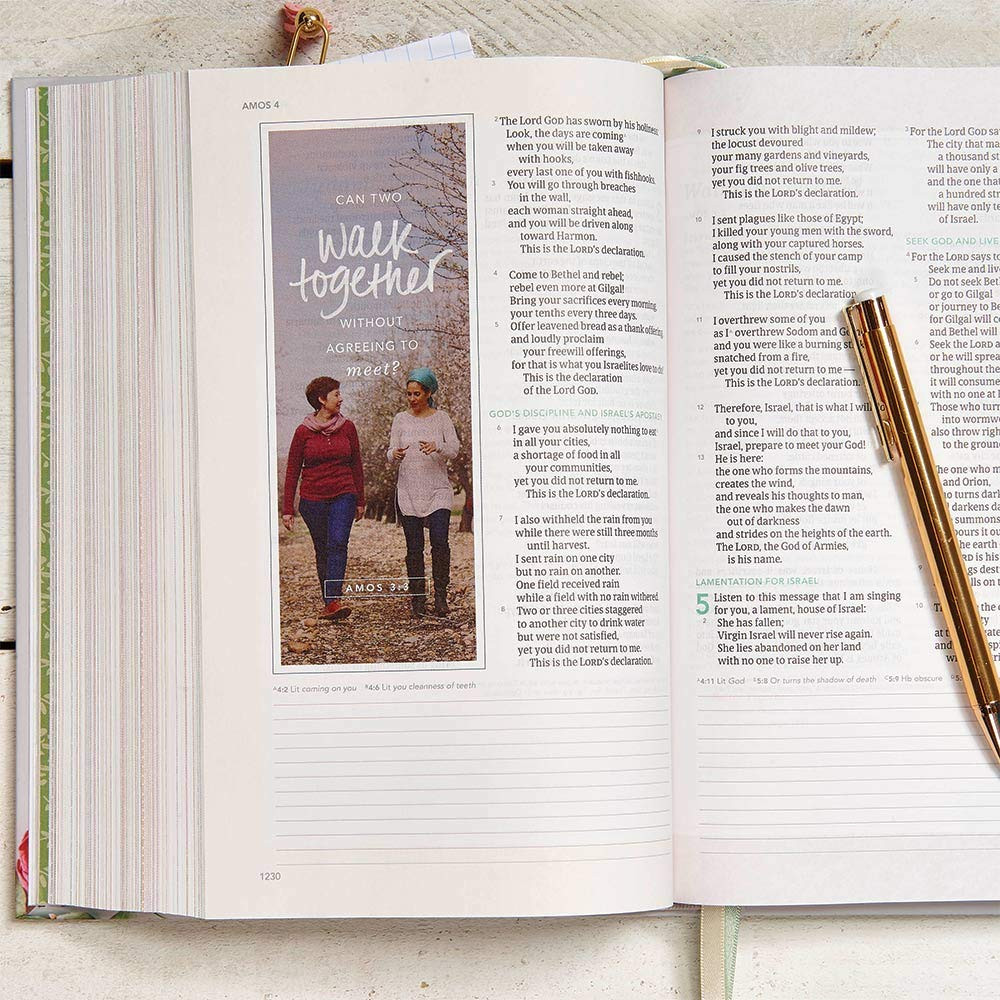 AMOS 4
CAN TWO
walk
together
WITHOUT
AGREEING TO
meet?
AMOS 3:3
2 The Lord GOD has sworn by his holiness
Look, the days are coming
when you will be taken away
with hooks,
every last one of you with fishhooks.
3 You will go through breaches
in the wall,
each woman straight ahead,
and you will be driven along
toward Harmon.
This is the LORD's declaration.
4 Come to Bethel and rebel;
rebel even more at Gilgal!
Bring your sacrifices every morning,
your tenths every three days.
5 Offer leavened bread as a thank offering,
and loudly proclaim
your freewill offerings,
for that is what you Israelites love to do!
This is the declaration
of the Lord GOD.
GOD'S DISCIPLINE AND ISRAEL'S APOSTASY
6 I gave you absolutely nothing to eat
in all your cities,
a shortage of food in all
your communities,
yet you did not return to me.
This is the LORD's declaration.
7 I also withheld the rain from you
while there were still three months
until harvest.
I sent rain on one city
but no rain on another.
One field received rain
while a field with no rain withered.
8 Two or three cities staggered
to another city to drink water
but were not satisfied,
yet you did not return to me.
This is the LORD's declaration.
A4:2 Lit coming on you B4:6 Lit you cleanness of teeth
1230
9 I struck you with blight and mildew;
the locust devoured
your many gardens and vineyards,
your fig trees and olive trees,
yet you did not return to me.
This is the LORD's declaration.
10 I sent plagues like those of Egypt;
I killed your young men with the sword,
along with your captured horses.
I caused the stench of your camp
to fill your nostrils,
yet you did not return to me.
This is the LORD's declaration.
11 I overthrew some of you
as I A overthrew Sodom and
and you were like a burning
snatched from a fire,
yet you did not return to me —
This is the LORD's declaration.
12 Therefore, Israel, that is what I will do
to you,
and since I will do that to you,
Israel, prepare to meet your God!
13 He is here:
the one who forms the mountains,
creates the wind,
and reveals his thoughts to man,
the one who makes the dawn
out of darkness
and strides on the heights of the earth.
The LORD, the God of Armies,
is his name.
LAMENTATION FOR ISRAEL
5 Listen to this message that I am singing
for you, a lament, house of Israel:
2 She has fallen;
Virgin Israel will never rise again.
She lies abandoned on her land
with no one to raise her up.
A4:11 Lit God B5:8 Or turns the shadow of death C5:9 Hb obscure
3 For the Lord GOD
The city that
a thousand
will have only a
and the one that
a hundred
will have only
of Israel.
SEEK GOD AND LIVE
4 For the LORD says to
Seek me and live
5 Do not seek
or go to Gilgal
or journey to
for Gilgal will
and Bethel will
6 Seek the LORD
or he will
throughout the
it will consume
with no one at
7 Those who turn
into
also throw
to the
one who
and Orion,
turns
darkens
summons
out
the earth
is his
10